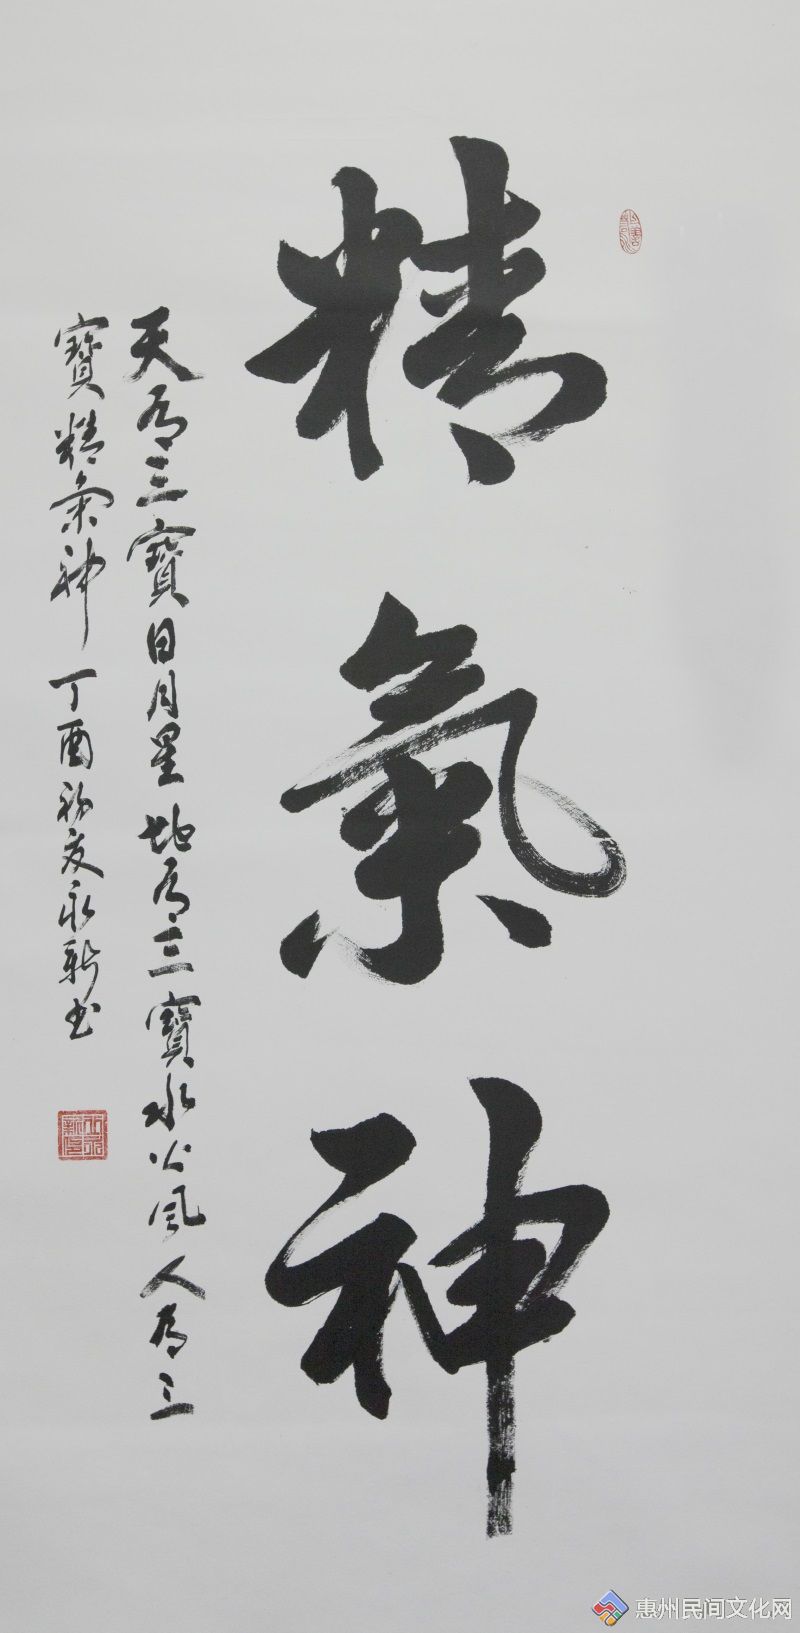 精氣神
天有三寶日月星地有三寶水火風人有三
寶精氣神 丁酉初夏永新书
惠州民间文化网